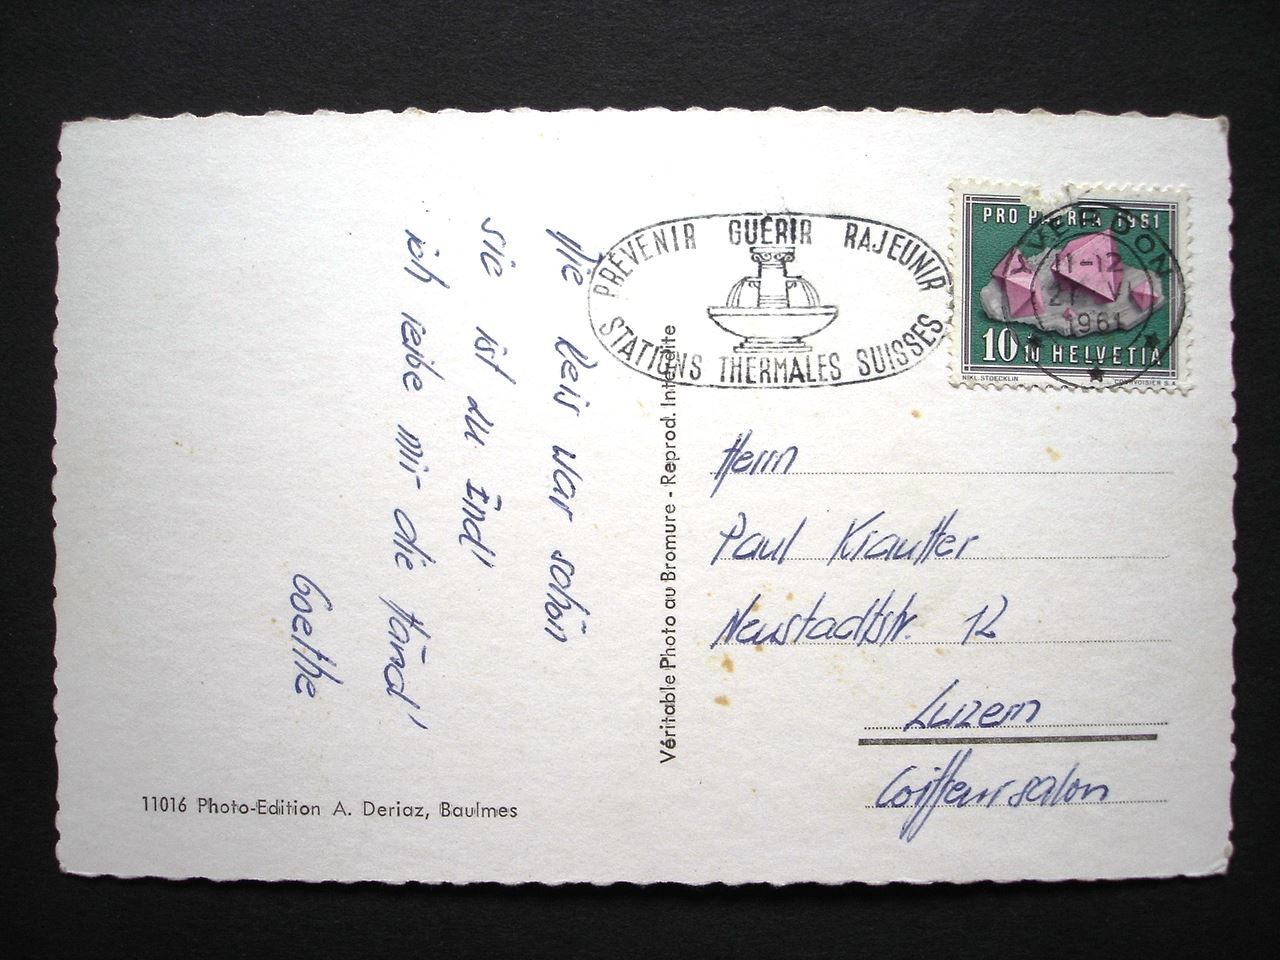 Die Reis war schön
sie ist zu End'
ich reibe mir die Händ'
Goethe
PRÉVENIR GUÉRIR RAJEUNIR
STATIONS THERMALES SUISSES
PRO PATRIA 1961
YVERDON
11-12
21 VI
1961
10
10 HELVETIA
NIKL. STOECKLIN
COURVOISIER S.A.
Véritable Photo au Bromure - Reprod. Interdite
Herrn
Paul Krautter
Neustadtstr. 12
Luzern
Coiffeursalon
11016 Photo-Edition A. Deriaz, Baulmes